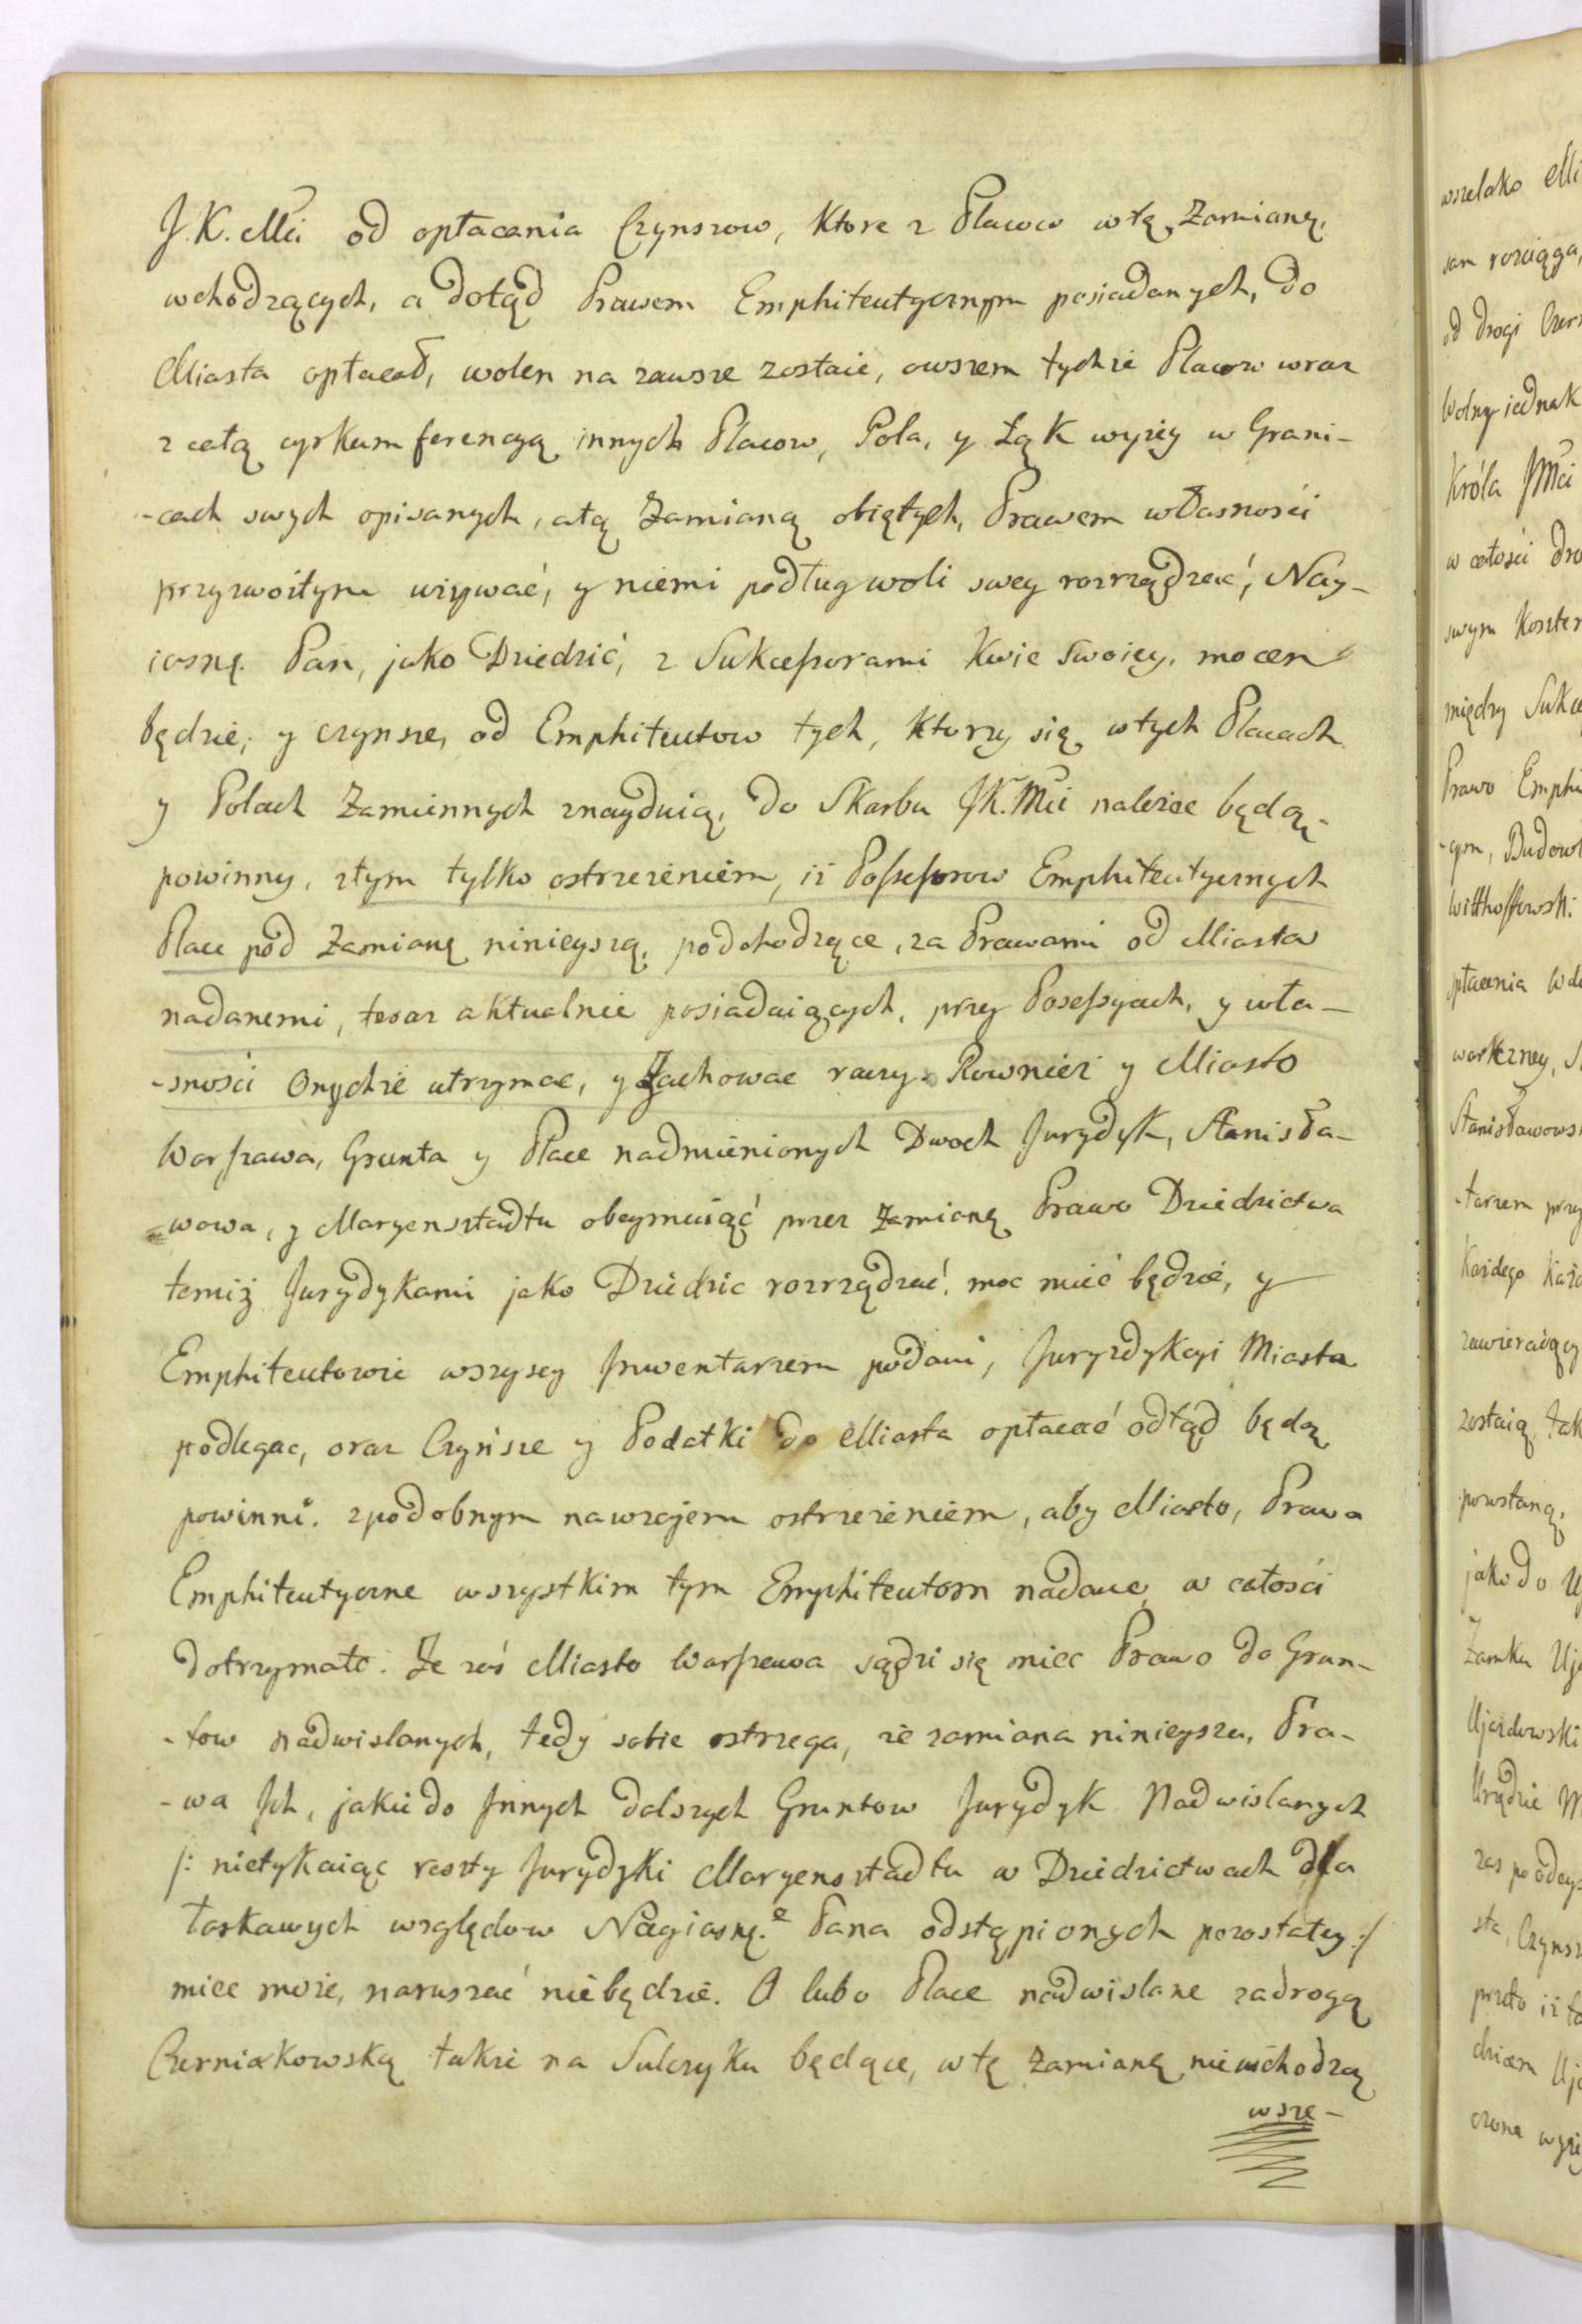 J.K. Mci od opłacania Czynszow, Ktore z Placow w tę Zamianę,
wchodzących, a dotąd Prawem Emphiteutycznym posiadanych, do
Miasta opłacał, wolen na zawsze zostaie, owszem tychże Placow wraz
z całą cyrkumferencyą innych Placow, Pola, y Łąk wyżey w Grani-
-cach swych opisanych, a tą Zamianą obiętych, Prawem własności
przyzwoitym używać, y niemi podług woli swey rozrządzać, Nay-
iasnę. Pan, jako Dziedzić, z Sukcessorami Kwie Swoiey, mocen
będzie; y czynsze, od Emphiteutow tych, Ktorzy się w tych Placach
y Polach Zamiennych znayduią, do Skarbu JK.Mci należec będą,
powinny, z tym tylko ostrzeżeniem, iż Possessorow Emphiteutycznych
Place pod Zamianę ninieyszą, podchodzące, za Prawami od Miasta
nadanemi, teraz aktualnie posiadaiących, przy Posessyach, y wła-
-sności Onychże utrzymac, y Zachowac raczy. Rownież y Miasto
Warszawa, Grunta y Place nadmienionych Dwoch Jurydyk, Stanisła-
-wowa, y Maryensztadtu obeymuiąć przez Zamianę Prawo Dziedzictwa
temiż Jurydykami jako Dziedzic rozrządzać, moc mieć będzie, y
Emphiteutowie wszyscy Inwentarzem podani, Juryzdykcyi Miasta
podlegac, oraz Czyńsze y Podatki do Miasta opłacać odtąd będą
powinni. z podobnym nawzajem ostrzeżeniem, aby Miasto, Prawa
Emphiteutyczne wszystkim tym Emphiteutom nadane, w całości
dotrzymało. Że zaś Miasto Warszawa sądzi się miec Prawo do Grun-
-tow nadwislanych, tedy sobie ostrzega, że zamiana ninieysza, Pra-
-wa Ich, jakie do Innych dalszych Gruntow Jurydyk Nadwislanych
/: nietykaiąc reszty Jurydyki Maryensztadtu w Dziedzictwach dla
łaskawych względow Nayiasnę.e Pana odstąpionych pozostałey :/
miec może, naruszać niebędzie. A lubo Place nadwislane za drogą
Czerniakowską także na Sulczyku będące, w tę Zamianę niewchodzą
wsze-
wszelako Mi
sam rozciąga,
od drogi Czer
Wolny iednak
Króla JMci
w całości dro
swym Kosztem
między Sukce
Prawo Emphi
-cym, Budowl
Witthoffowski
płacenia
Stanisławows
-tarzem przy
Każdego
zawieraiący
zostaią, tak
powstaną,
jako do
Zamku Uja
Ujazdowski
Urzędzie M
sta, Czynsz
przeto iż